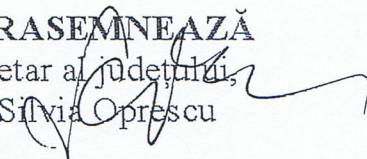 RASEMNEAZĂ
etar al județului,
Silvia Oprescu